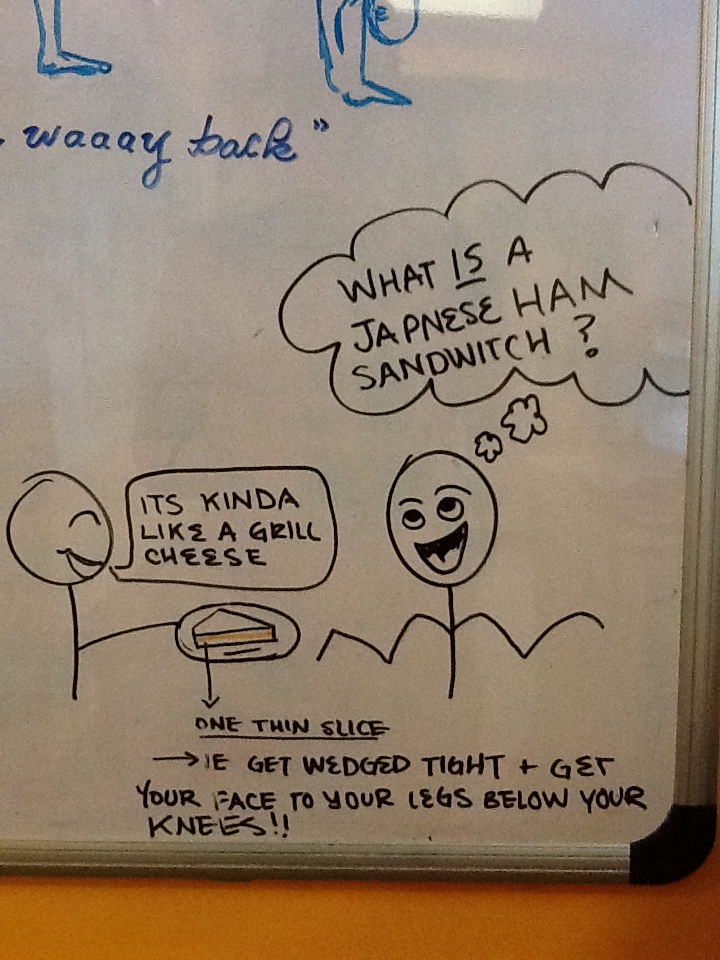 waaay back"
WHAT IS A
JAPNESE HAM
SANDWITCH ?
ITS KINDA
LIKE A GRILL
CHEESE
ONE THIN SLICE
→ IE GET WEDGED TIGHT + GET
YOUR FACE TO YOUR LEGS BELOW YOUR
KNEES!!